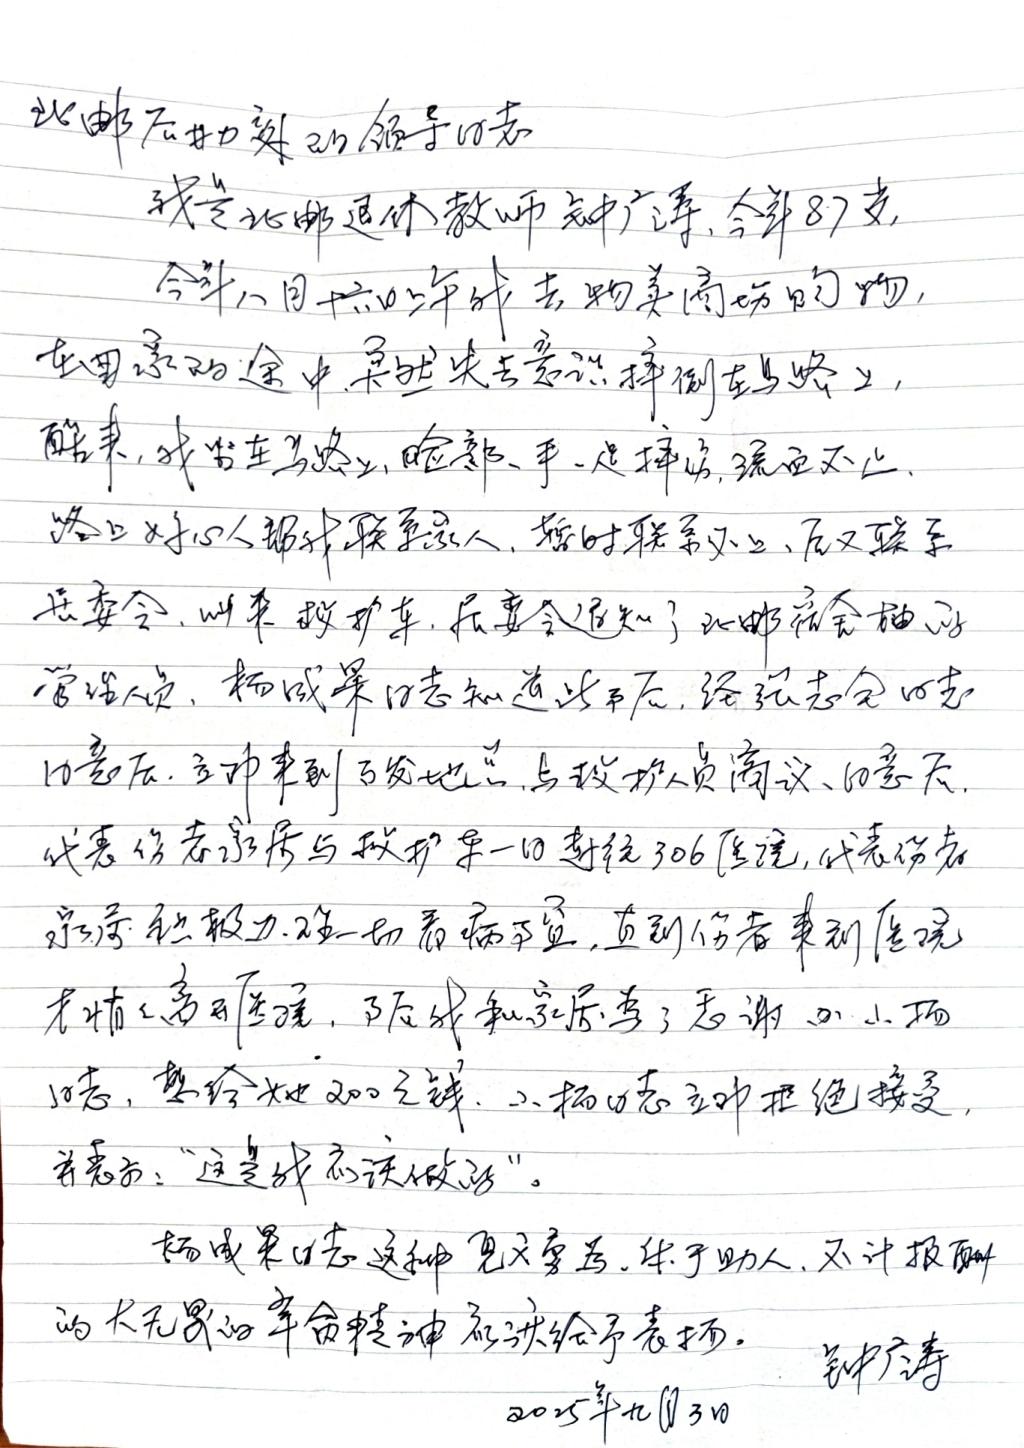 北邮后勤处的领导同志
我是北邮退休教师钟广涛、今年87岁,
今年八月十六日上午我去物美商场购物,
在回家的途中,突然失去意识摔倒在马路上,
醒来,我坐在马路上,脸部、手、足摔伤,流血不止、
路上好心人帮我联系家人、暂时联系不上、后又联系
居委会、叫来救护车,居委会通知了北邮宿舍
管理人员、杨成果同志知道此事后,经张志全同志
同意后、立即来到事发地点,与救护人员商议、同意后,
代表伤者家属与救护车一同赶往306医院,代表伤者
家属积极办理一切看病事宜,直到伤者来到医院
才离开医院,事后我和家属为了感谢 小杨
同志,想给她200元钱、小杨同志立即拒绝接受,
并表示:“这是我应该做的”。
杨成果同志这种见义勇为、乐于助人、不计报酬
的大无畏的革命精神应该给予表扬。
钟广涛
2025年九月3日